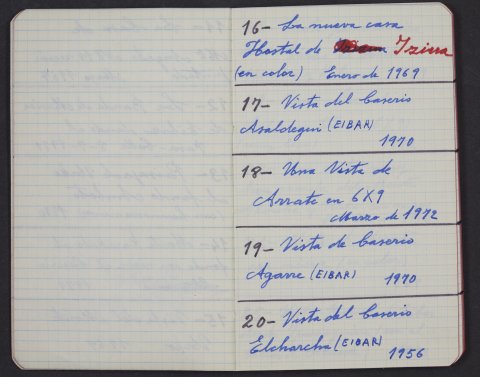 16- La nueva casa
Hostal de Iziar
(en color) Enero de 1969
17- Vista del Caserio
Asaldegui (EIBAR)
1970
18- Una Vista de
Arrate en 6X9
Marzo de 1972
19- Vista de Caserio
Agarre (EIBAR) 1970
20- Vista del Caserio
Elcharcha (EIBAR)
1956